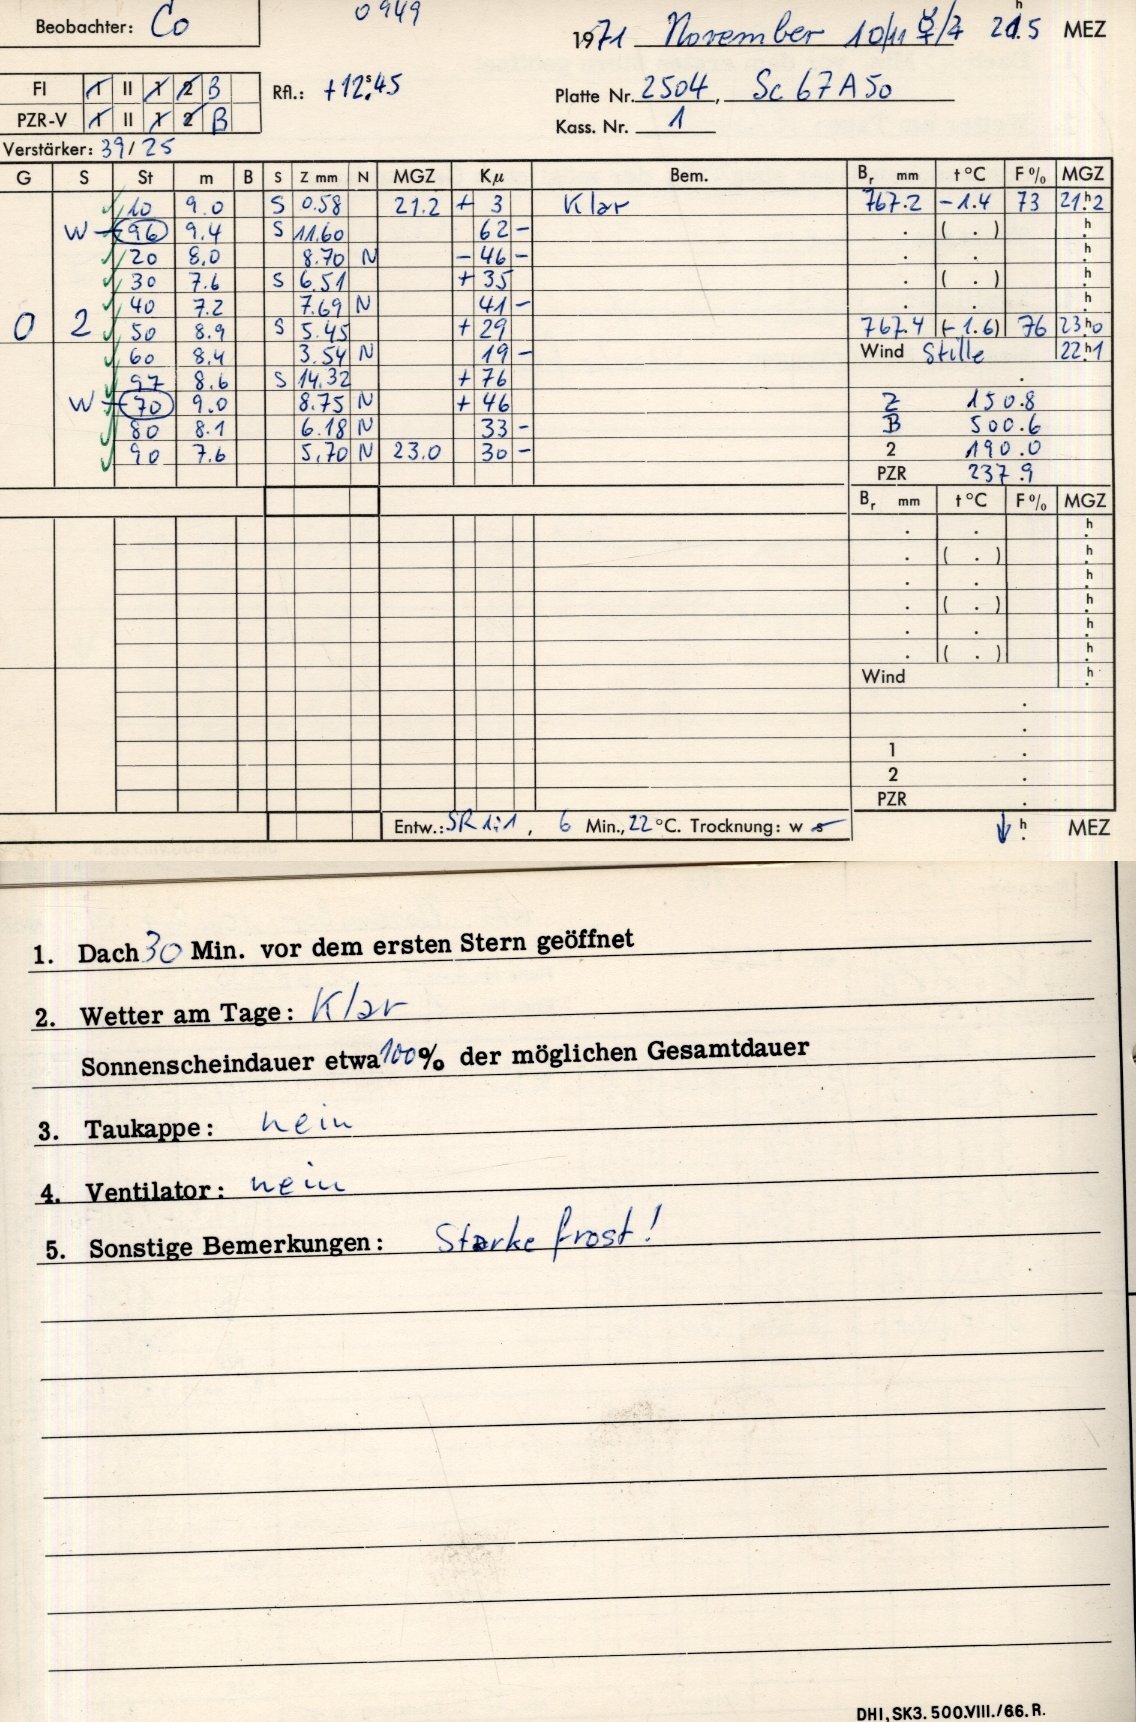 0949
Beobachter: Co
1971 November 10/11 ☿/♃ 21.5 h MEZ
FI 1 II 1 2 B Rfl.: +12.s45
Platte Nr. 2504, Sc 67A50
PZR-V 1 II 1 2 B
Kass. Nr. 1
Verstärker: 39/25
G S St m B S Z mm N MGZ Kμ Bem. Br mm t°C F% MGZ
10 9.0 S 0.58 21.2 + 3 Klar 767.2 -1.4 73 21.h2
W 96 9.4 S 11.60 62 - . ( . ) h.
20 8.0 8.70 N - 46 - . . h.
30 7.6 S 6.51 + 35 . ( . ) h.
40 7.2 7.69 N 41 - . . h.
0 2 50 8.9 S 5.45 + 29 767.4 (-1.6) 76 23.h0
60 8.4 3.54 N 19 - Wind Stille 22.h1
97 8.6 S 14.32 + 76 .
W 70 9.0 8.75 N + 46 Z 150.8
80 8.1 6.18 N 33 - B 500.6
90 7.6 5.70 N 23.0 30 - 2 190.0
PZR 237.9
Br mm t°C F% MGZ
. . h.
. ( . ) h.
. . h.
. ( . ) h.
. . h.
. ( . ) h.
Wind h.
.
.
1 .
2 .
PZR .
Entw.: SR 1:1, 6 Min., 22°C. Trocknung: w s ↓ h. MEZ
1. Dach 30 Min. vor dem ersten Stern geöffnet
2. Wetter am Tage: Klar
Sonnenscheindauer etwa 100% der möglichen Gesamtdauer
3. Taukappe: nein
4. Ventilator: nein
5. Sonstige Bemerkungen: Starke frost!
DHI, SK3. 500.VIII./66. R.